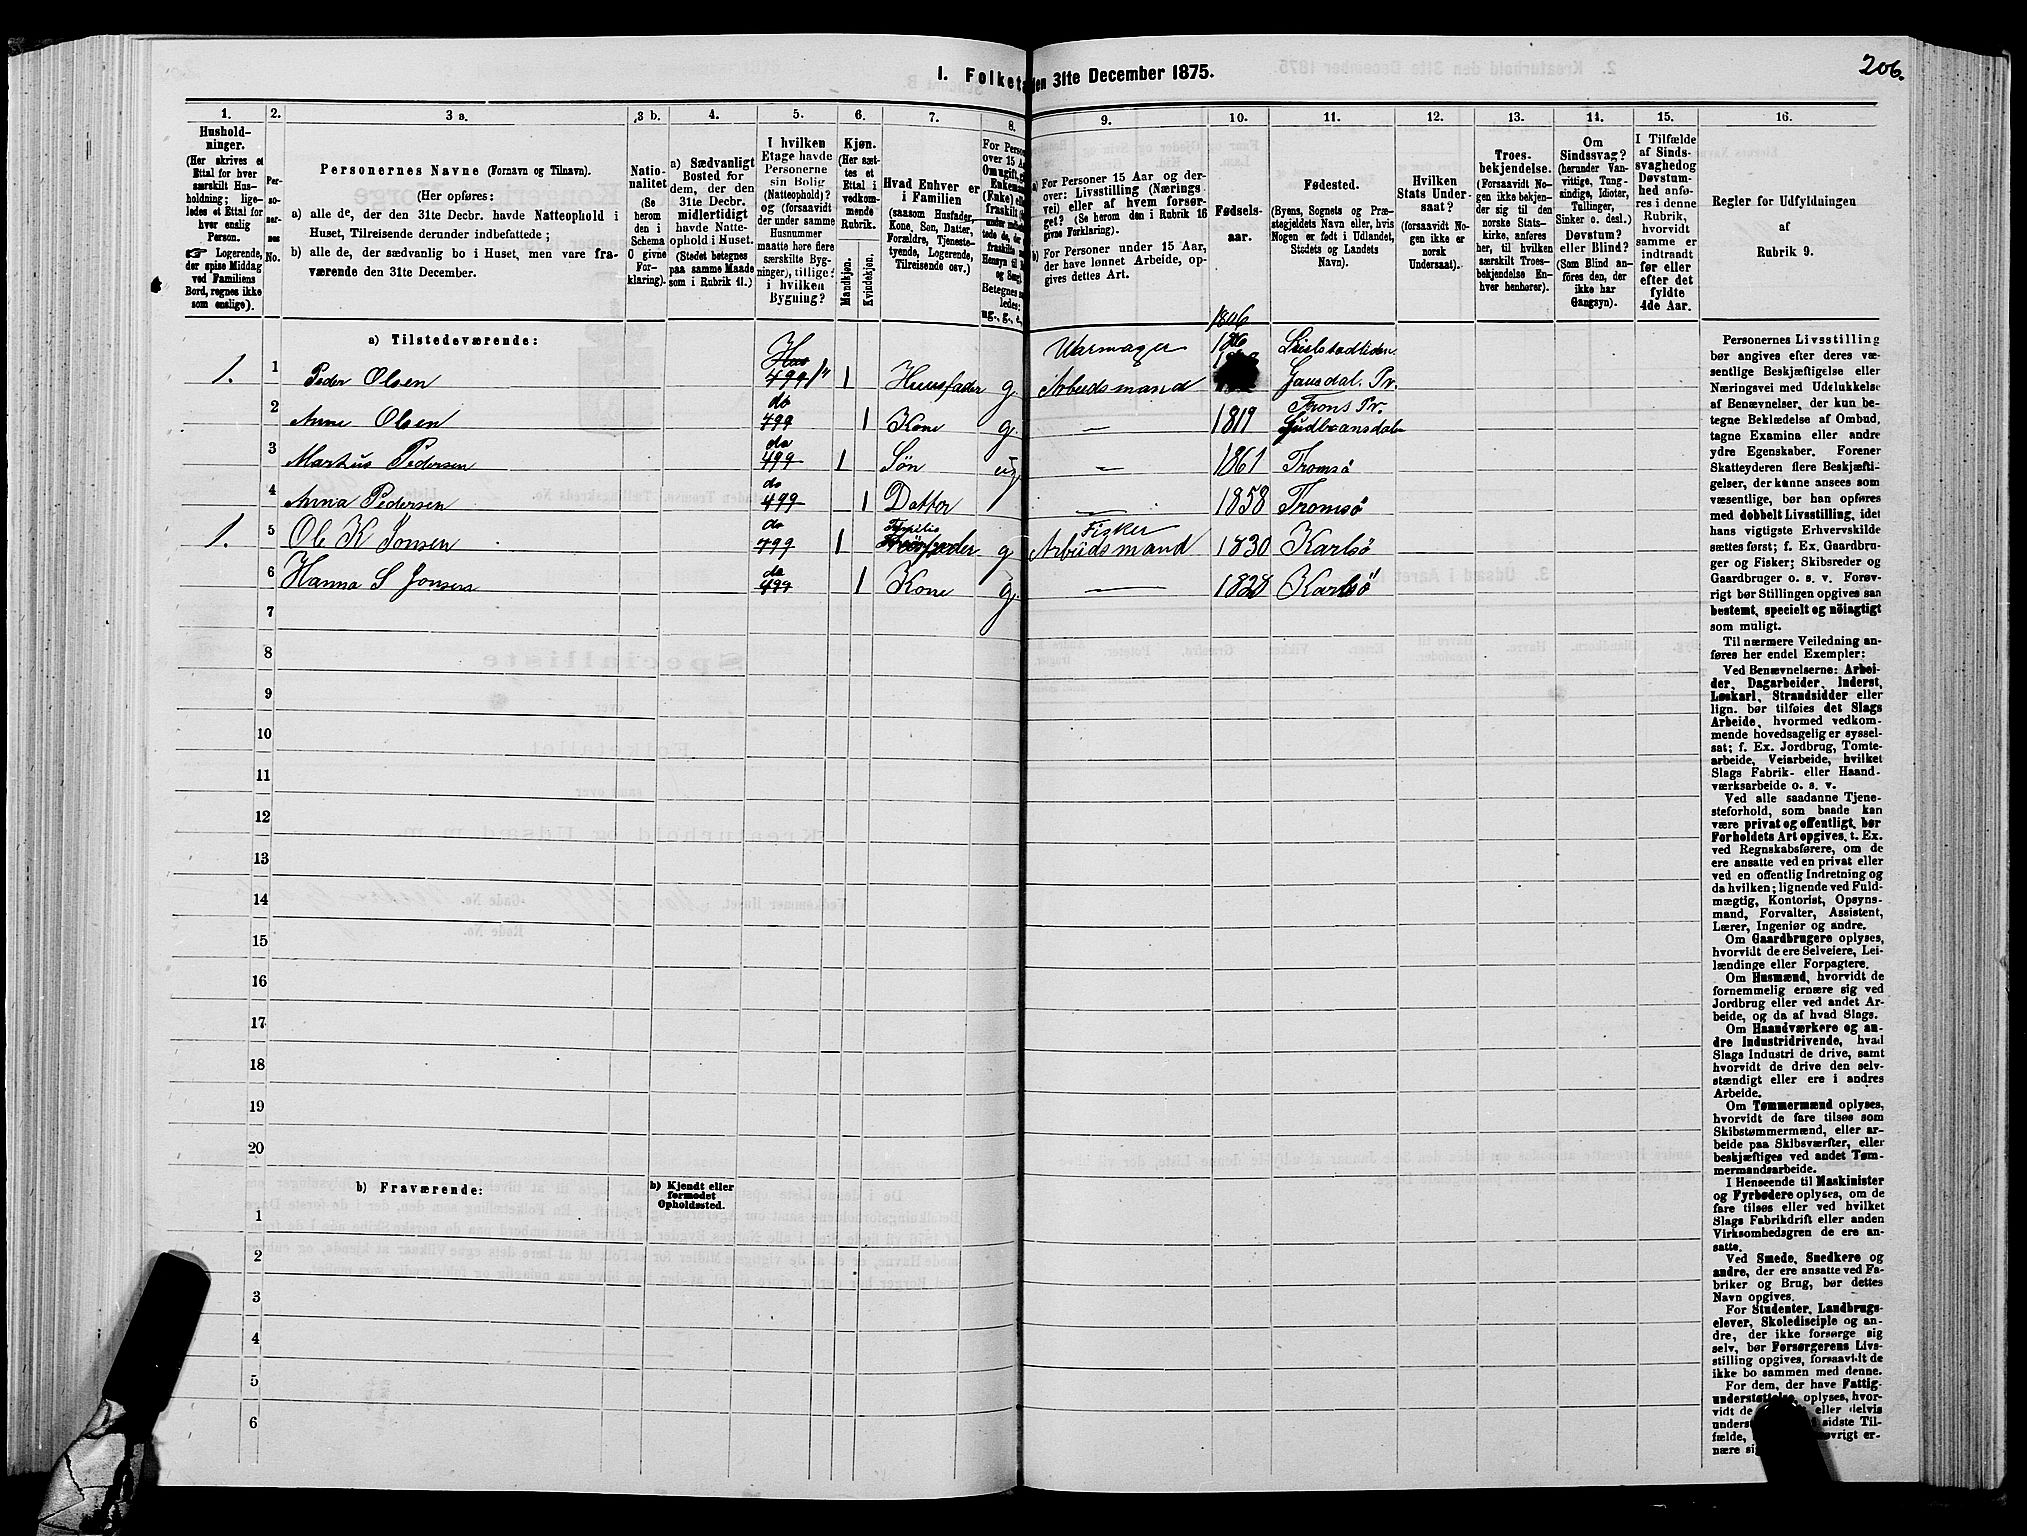 206.
I. Folketa
den 31te December 1875.
1.
Hushold-
ninger.
(Her skrives et
Ettal for hver
særskilt Hus-
holdning; lige-
ledes et Ettal for
hver enslig
Person.
☛ Logerende,
der spise Middag
ved Familiens
Bord, regnes ikke
som enslige).
2.
Per-
so-
ner-
nes
No.
3 a.
Personernes Navne (Fornavn og Tilnavn).
(Her opføres:
a) alle de, der den 31te Decbr. havde Natteophold i
Huset, Tilreisende derunder indbefattede;
b) alle de, der sædvanlig bo i Huset, men vare fra-
værende den 31te December.
3 b.
Natio-
nalitet
(Se
herom
den i
Schema
O givne
For-
klaring).
4.
a) Sædvanligt
Bosted for
dem, der den
31te Decbr.
midlertidigt
havde Natte-
ophold i Huset.
(Stedet betegnes
paa samme Maade
som i Rubrik 11.)
5.
I hvilken
Etage havde
Personerne
sin Bolig
(Natteophold)?
og (forsaavidt
der under samme
Husnummer
maatte høre flere
særskilte Byg-
ninger), tillige:
i hvilken
Bygning?
6.
Kjøn.
(Her sæt-
tes et
Ettal i
vedkom-
mende
Rubrik.
Mandkjøn.
Kvindekjøn.
7.
Hvad Enhver er
i Familien
(saasom Husfader,
Kone, Søn, Datter,
Forældre, Tjeneste-
tyende, Logerende,
Tilreisende osv.)
8.
For Person
over 15 Aar
Om ugift, gi
Enkemand
(Enke) ell
fraskilt
Betegnes
ledes:
ug., g., e.,
9.
a) For Personer 15 Aar og der-
over: Livsstilling (Nærings
vei) eller af hvem forsør-
get? (Se herom den i Rubrik 16
givne Forklaring).
b) For Personer under 15 Aar,
der have lønnet Arbeide, op-
gives dettes Art.
10.
Fødsels-
aar.
11.
Fødested.
(Byens, Sognets og Præ-
stegjeldets Navn eller, hvis
Nogen er født i Udlandet,
Stedets og Landets
Navn).
12.
Hvilken
Stats Under-
saat?
(forsaavidt No-
gen ikke er
norsk
Undersaat).
13.
Troes-
bekjendelse.
(Forsaavidt No-
gen ikke bekjen-
der sig til den
norske Stats-
kirke, anføres
her, til hvilken
særskilt Troes-
bekjendelse En-
hver henhører).
14.
Om
Sindssvag?
(herunder Van-
vittige, Tung-
sindige, Idioter,
Tullinger,
Sinker o. desl.)
Døvstum?
eller Blind?
(Som Blind an-
føres den, der
ikke har
Gangsyn).
15.
I Tilfælde
af Sinds-
svaghed og
Døvstum-
hed anfø-
res i denne
Rubrik,
hvorvidt
samme er
indtrandt
før eller
efter det
fyldte
4de Aar.
16.
Regler for Udfyldningen
af
Rubrik 9.
a) Tilstedeværende:
1. 1 Peder Olsen Hus 499 1" 1 Huusfader g Uarmager Arbeidsmand 1806 1806 Gausdal. Pr.
2 Anne Olsen do 499 1 Kone g. — 1819 Frons Pr. Gudbransdalen
3 Markus Pedersen do 499 1 Søn ug — 1861 Tromsø
4 Anna Pedersen do 499 1 Datter — 1858 Tromsø
1. 5 Ol K Jonsen do 499 1 Familie g Fisker Arbeidsmand 1830 Karlsø
6 Hanna S Jonsen do 499 1 Kone g. — 1828 Karlsø
7
8
9
10
11
12
13
14
15
16
17
18
19
20
b) Fraværende:
b) Kjendt eller
formodet
Opholdssted.
1
2
3
4
5
6
Personernes Livsstilling
bør angives efter deres væ-
sentlige Beskjæftigelse eller
Næringsvei med Udelukkelse
af Benævnelser, der kun be-
tegne Beklædelse af Ombud,
tagne Examina eller andre
ydre Egenskaber. Forener
Skatteyderen flere Beskjæfti-
gelser, der kunne ansees som
væsentlige, bør han opføres
med dobbelt Livsstilling, idet
hans vigtigste Erhvervskilde
sættes først; f. Ex. Gaardbru-
ger og Fisker; Skibsreder og
Gaardbruger o. s. v. Forøv-
rigt bør Stillingen opgives saa
bestemt, specielt og nøiagtigt
som muligt.
Til nærmere Veiledning an-
føres her endel Exempler:
Ved Benævnelserne: Arbei-
der, Dagarbeider, Inderst,
Løskarl, Strandsidder eller
lign. bør tilføies det Slags
Arbeide, hvormed vedkom-
mende hovedsagelig er syssel-
sat; f. Ex. Jordbrug, Tomte-
arbeide, Veiarbeide, hvilket
Slags Fabrik- eller Haand-
værksarbeide o. s. v.
Ved alle saadanne Tjene-
steforhold, som baade kan
være privat og offentligt, bør
Forholdets Art opgives, t. Ex.
ved Regnskabsførere, om de
ere ansatte ved en privat eller
ved en offentlig Indretning og
da hvilken; lignende ved Fuld-
mægtig, Kontorist, Opsyns-
mand, Forvalter, Assistent,
Lærer, Ingeniør og andre.
Om Gaardbrugere oplyses,
hvorvidt de ere Selveiere, Lei-
lændinge eller Forpagtere.
Om Husmænd, hvorvidt de
fornemmelig ernære sig ved
Jordbrug eller ved andet Ar-
beide, og da af hvad Slags.
Om Haandværkere og an-
dre Industridrivende, hvad
Slags Industri de drive, samt
hvorvidt de drive den selv-
stændigt eller ere i andres
Arbeide.
Om Tømmermænd oplyses,
hvorvidt de fare tilsøs som
Skibstømmermænd, eller ar-
beide paa Skibsværfter, eller
beskjæftiges ved andet Tøm-
mermandsarbeide.
I Henseende til Maskinister
og Fyrbødere oplyses, om de
fare tilsøs eller ved hvilket
Slags Fabrikdrift eller anden
Virksomhedsgren de ere an-
satte.
Ved Smede, Snedkere og
andre, der ere ansatte ved Fa-
briker og Brug, bør dettes
Navn opgives.
For Studenter, Landbrugs-
elever, Skoledisciple og an-
dre, der ikke forsørge sig
selv, bør Forsørgerens Livs-
stilling opgives, forsaavidt de
ikke bo sammen med denne.
For dem, der have Fattig-
understøttelse, oplyses, hvor-
vidt de eller delvis
underst sidste Til-
fælde, øvrigt er-
nære sig